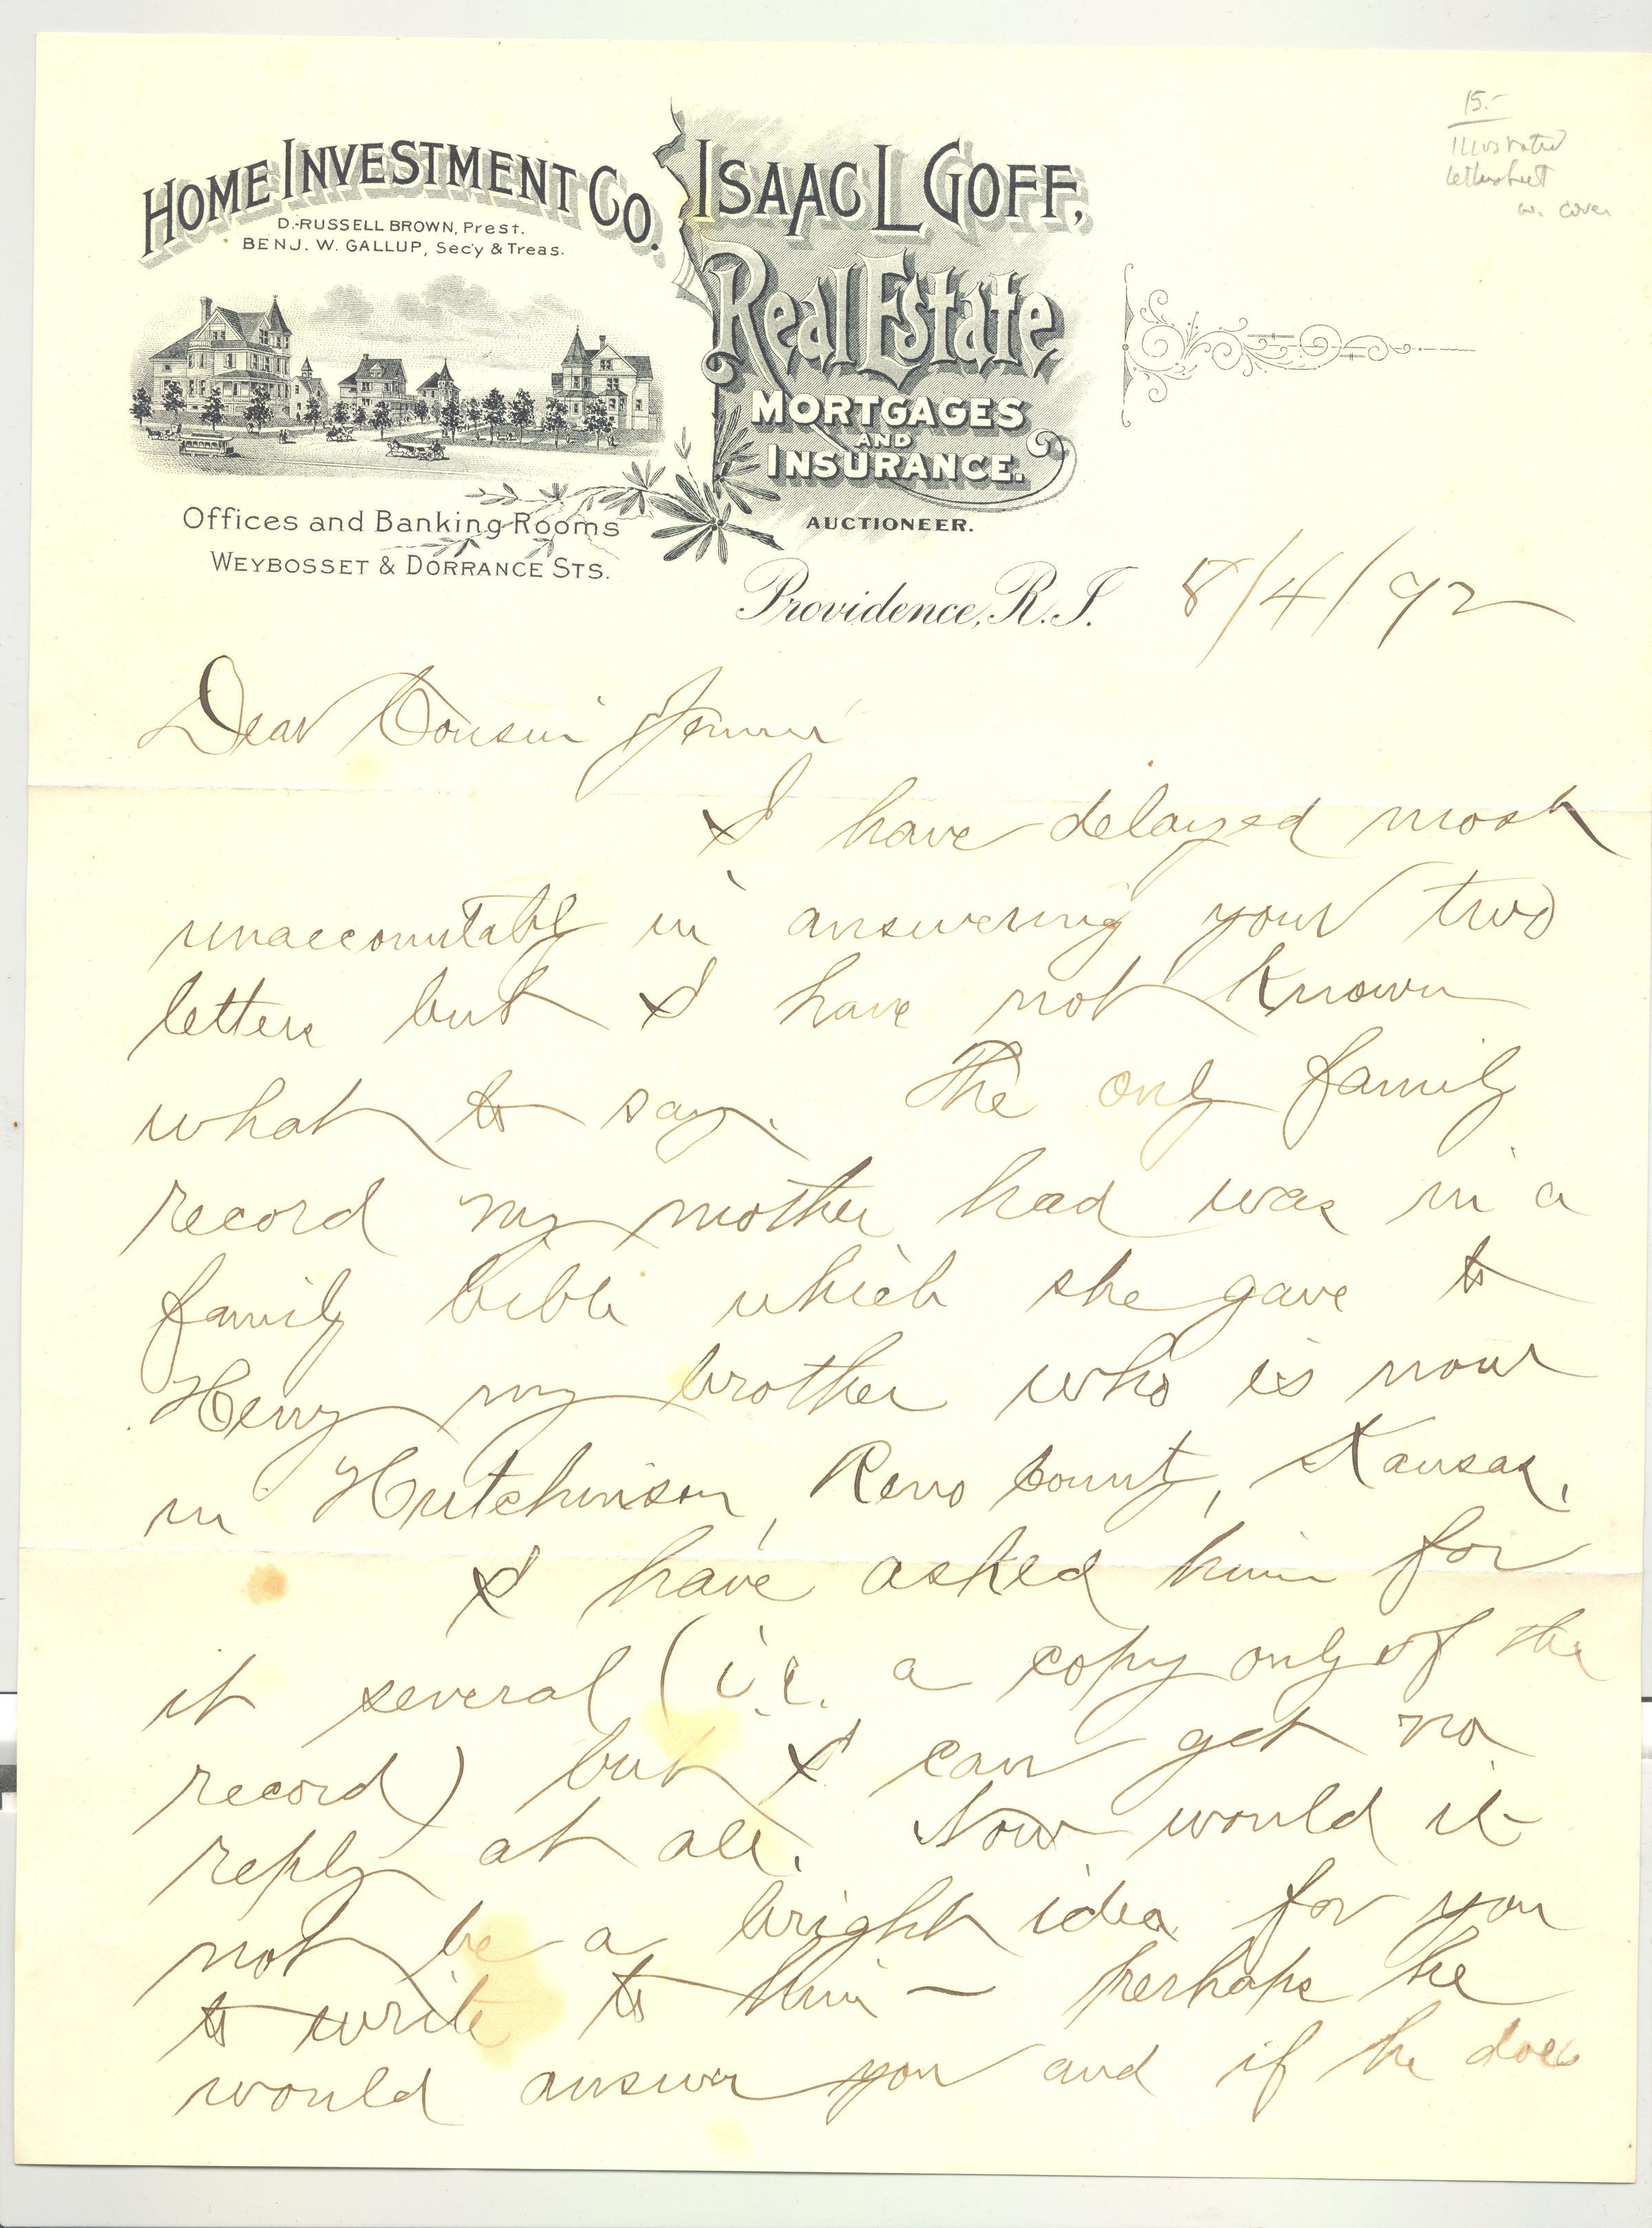 15.-
Illustrated
lettersheet
w. cover
HOME INVESTMENT CO.
D. RUSSELL BROWN, Prest.
BENJ. W. GALLUP, Sec'y & Treas.
Offices and Banking Rooms
WEYBOSSET & DORRANCE STS.
ISAAC L GOFF,
Real Estate
MORTGAGES
AND
INSURANCE.
AUCTIONEER.
Providence, R.I. 8/4/92
Dear Cousin Jennie
I have delayed most
unaccountably in answering your two
letters but I have not known
what to say. The only family
record my mother had was in a
family bible which she gave to
Henry my brother who is now
in Hutchinson, Reno County, Kansas.
I have asked him for
it several (i.e. a copy only of the
record) but I can get no
reply at all. Now would it
not be a bright idea for you
to write to him - perhaps he
would answer you and if he does